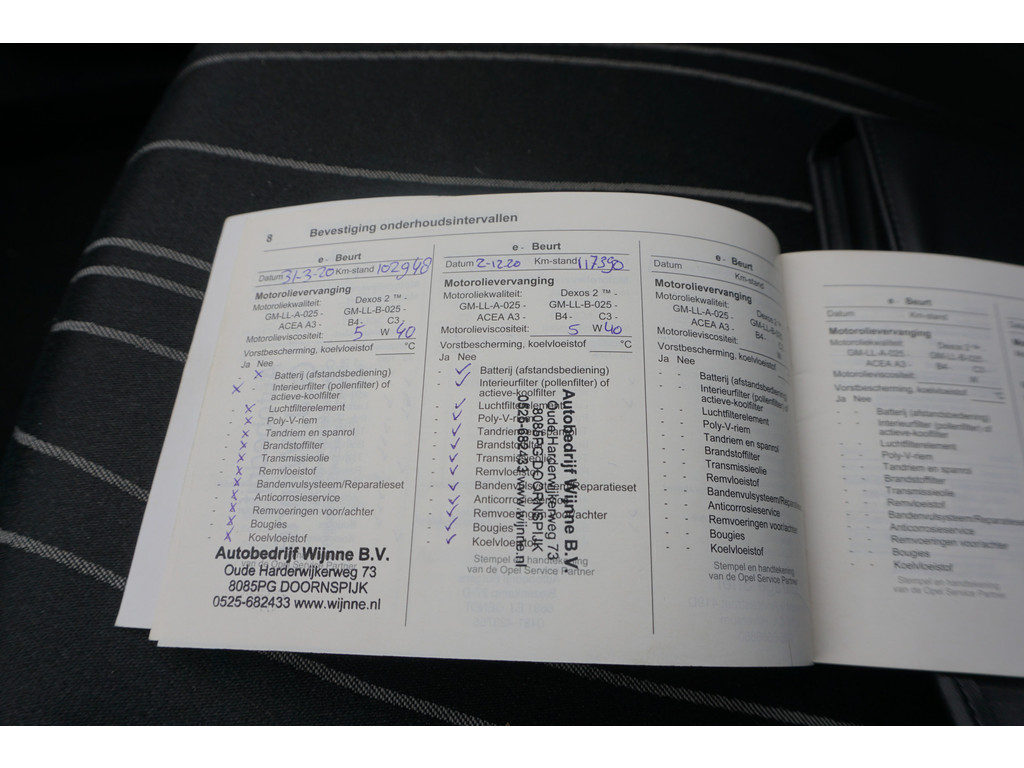 8 Bevestiging onderhoudsintervallen
e - Beurt
Datum 31-3-20 Km-stand 102948
Motorolievervanging
Motoroliekwaliteit: Dexos 2 ™ -
GM-LL-A-025 - GM-LL-B-025 -
ACEA A3 - B4- C3 -
Motorolieviscositeit: 5 W 40
Vorstbescherming, koelvloeistof °C
Ja Nee
- x Batterij (afstandsbediening)
x - Interieurfilter (pollenfilter) of
actieve-koolfilter
- x Luchtfilterelement
- x Poly-V-riem
- x Tandriem en spanrol
- x Brandstoffilter
- x Transmissieolie
- x Remvloeistof
- x Bandenvulsysteem/Reparatieset
- x Anticorrosieservice
- x Remvoeringen voor/achter
- x Bougies
- x Koelvloeistof
Autobedrijf Wijnne B.V.
Oude Harderwijkerweg 73
8085PG DOORNSPIJK
0525-682433 www.wijnne.nl
e - Beurt
Datum 2-12-20 Km-stand 117390
Motorolievervanging
Motoroliekwaliteit: Dexos 2 ™ -
GM-LL-A-025 - GM-LL-B-025 -
ACEA A3 - B4- C3 -
Motorolieviscositeit: 5 W 40
Vorstbescherming, koelvloeistof °C
Ja Nee
- ✓ Batterij (afstandsbediening)
- ✓ Interieurfilter (pollenfilter) of
actieve-koolfilter
- ✓ Luchtfilterelement
- ✓ Poly-V-riem
- ✓ Tandriem en spanrol
- ✓ Brandstoffilter
- ✓ Transmissieolie
- ✓ Remvloeistof
- ✓ Bandenvulsysteem/Reparatieset
- ✓ Anticorrosieservice
- ✓ Remvoeringen voor/achter
- ✓ Bougies
- ✓ Koelvloeistof
Stempel en handtekening
van de Opel Service Partner
Autobedrijf Wijnne B.V.
Oude Harderwijkerweg 73
8085PG DOORNSPIJK
0525-682433 www.wijnne.nl
e - Beurt
Datum Km-stand
Motorolievervanging
Motoroliekwaliteit: Dexos 2
GM-LL-A-025 - GM-LL-B-025
ACEA A3 - B4- C3
Motorolieviscositeit: W
Vorstbescherming, koelvloeistof
Ja Nee
- - Batterij (afstandsbediening)
- - Interieurfilter (pollenfilter) of
actieve-koolfilter
- - Luchtfilterelement
- - Poly-V-riem
- - Tandriem en spanrol
- - Brandstoffilter
- - Transmissieolie
- - Remvloeistof
- - Bandenvulsysteem/Repara
- - Anticorrosieservice
- - Remvoeringen voor/achter
- - Bougies
- - Koelvloeistof
Stempel en handtekening
van de Opel Service Partner
e - Beurt
Datum Km-stand
Motorolievervanging
Motoroliekwaliteit: Dexos 2
GM-LL-A-025 - GM-LL-B-025
ACEA A3 - B4-
Motorolieviscositeit: W
Vorstbescherming, koelvloeistof
Ja Nee
- - Batterij (afstandsbediening)
- - Interieurfilter (pollenfilter) of
actieve-koolfilter
- - Luchtfilterelement
- - Poly-V-riem
- - Tandriem en spanrol
- - Brandstoffilter
- - Transmissieolie
- - Remvloeistof
- - Bandenvulsysteem
- - Anticorrosieservice
- - Remvoeringen voor/achter
- - Bougies
- - Koelvloeistof
Stempel en handtekening
van de Opel Service Partner